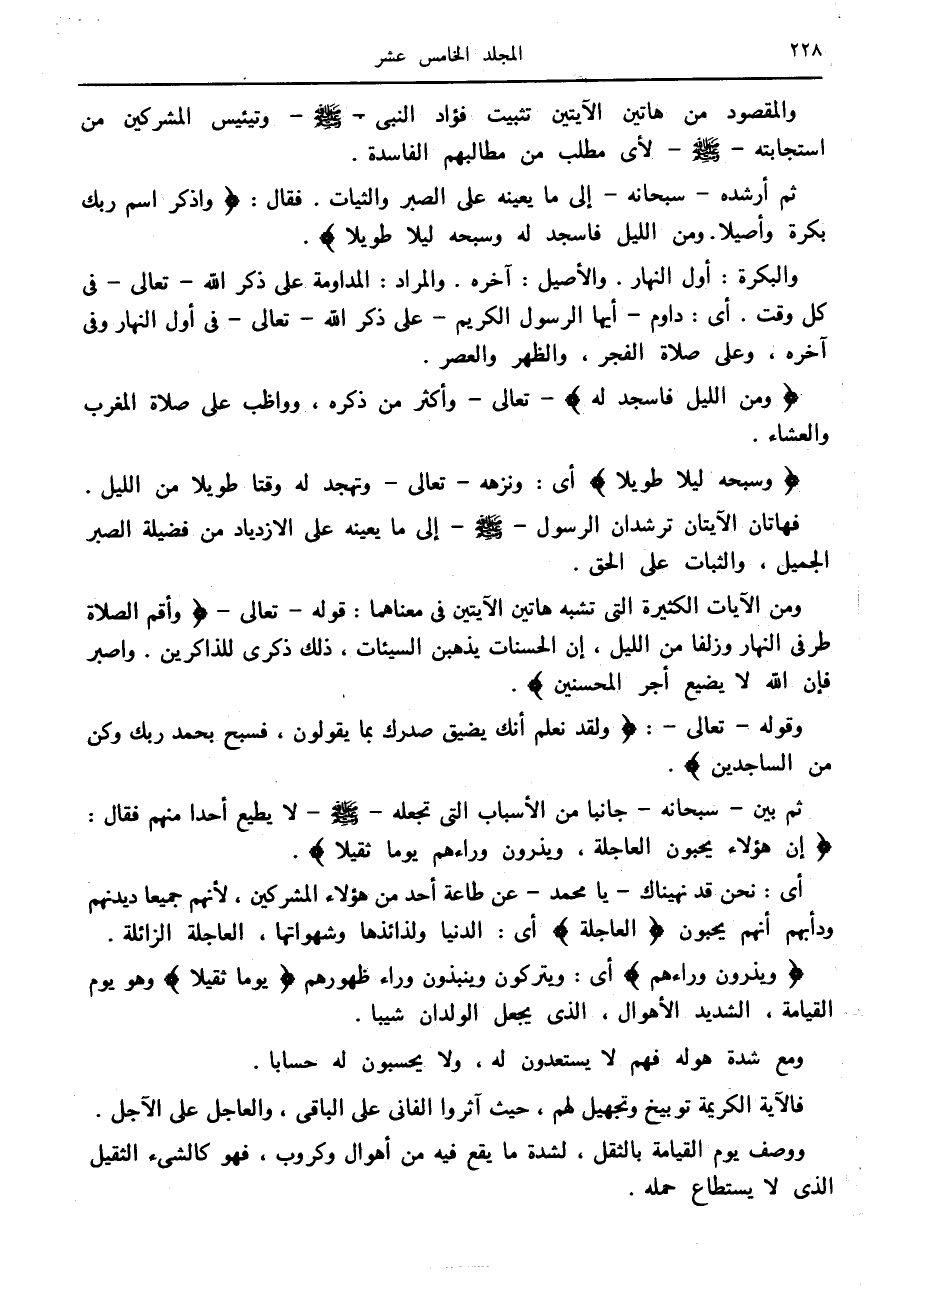 ٢٢٨
المجلد الخامس عشر
والمقصود من هاتين الآيتين تثبيت فؤاد النبى - ﷺ - وتيئيس المشركين من
استجابته - ﷺ - لأى مطلب من مطالبهم الفاسدة .
ثم أرشده - سبحانه - إلى ما يعينه على الصبر والثبات . فقال : ﴿ واذكر اسم ربك
بكرة وأصيلا. ومن الليل فاسجد له وسبحه ليلا طويلا ﴾ .
والبكرة : أول النهار . والأصيل : آخره . والمراد : المداومة على ذكر الله - تعالى - فى
كل وقت . أى : داوم - أيها الرسول الكريم - على ذكر الله - تعالى - فى أول النهار وفى
آخره ، وعلى صلاة الفجر ، والظهر والعصر .
﴿ ومن الليل فاسجد له ﴾ - تعالى - وأكثر من ذكره ، وواظب على صلاة المغرب
والعشاء .
﴿ وسبحه ليلا طويلا ﴾ أى : ونزهه - تعالى - وتهجد له وقتا طويلا من الليل .
فهاتان الآيتان ترشدان الرسول - ﷺ - إلى ما يعينه على الازدياد من فضيلة الصبر
الجميل ، والثبات على الحق .
ومن الآيات الكثيرة التى تشبه هاتين الآيتين فى معناهما : قوله - تعالى - ﴿ وأقم الصلاة
طرفى النهار وزلفا من الليل ، إن الحسنات يذهبن السيئات ، ذلك ذكرى للذاكرين . واصبر
فإن الله لا يضيع أجر المحسنين ﴾ .
وقوله - تعالى - : ﴿ ولقد نعلم أنك يضيق صدرك بما يقولون ، فسبح بحمد ربك وكن
من الساجدين ﴾ .
ثم بين - سبحانه - جانبا من الأسباب التى تجعله - ﷺ - لا يطيع أحدا منهم فقال :
﴿ إن هؤلاء يحبون العاجلة ، ويذرون وراءهم يوما ثقيلا ﴾ .
أى : نحن قد نهيناك - يا محمد - عن طاعة أحد من هؤلاء المشركين ، لأنهم جميعا ديدنهم
ودأبهم أنهم يحبون ﴿ العاجلة ﴾ أى : الدنيا ولذائذها وشهواتها ، العاجلة الزائلة .
﴿ ويذرون وراءهم ﴾ أى : ويتركون وينبذون وراء ظهورهم ﴿ يوما ثقيلا ﴾ وهو يوم
القيامة ، الشديد الأهوال ، الذى يجعل الولدان شيبا .
ومع شدة هوله فهم لا يستعدون له ، ولا يحسبون له حسابا .
فالآية الكريمة توبيخ وتجهيل لهم ، حيث آثروا الفانى على الباقى ، والعاجل على الآجل .
ووصف يوم القيامة بالثقل ، لشدة ما يقع فيه من أهوال وكروب ، فهو كالشىء الثقيل
الذى لا يستطاع حمله .